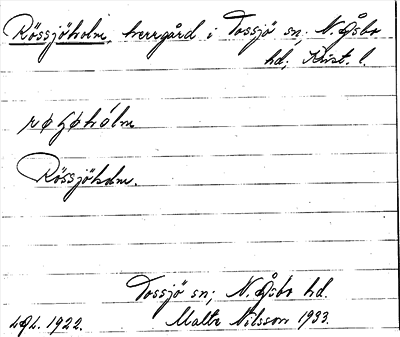 Rössjöholm, herrgård i Tossjö sn; N. Åsbo
hd; Krist. l.
Rössjöholm.
Tossjö sn; N. Åsbo hd.
1922. Malte Nilsson 1933.